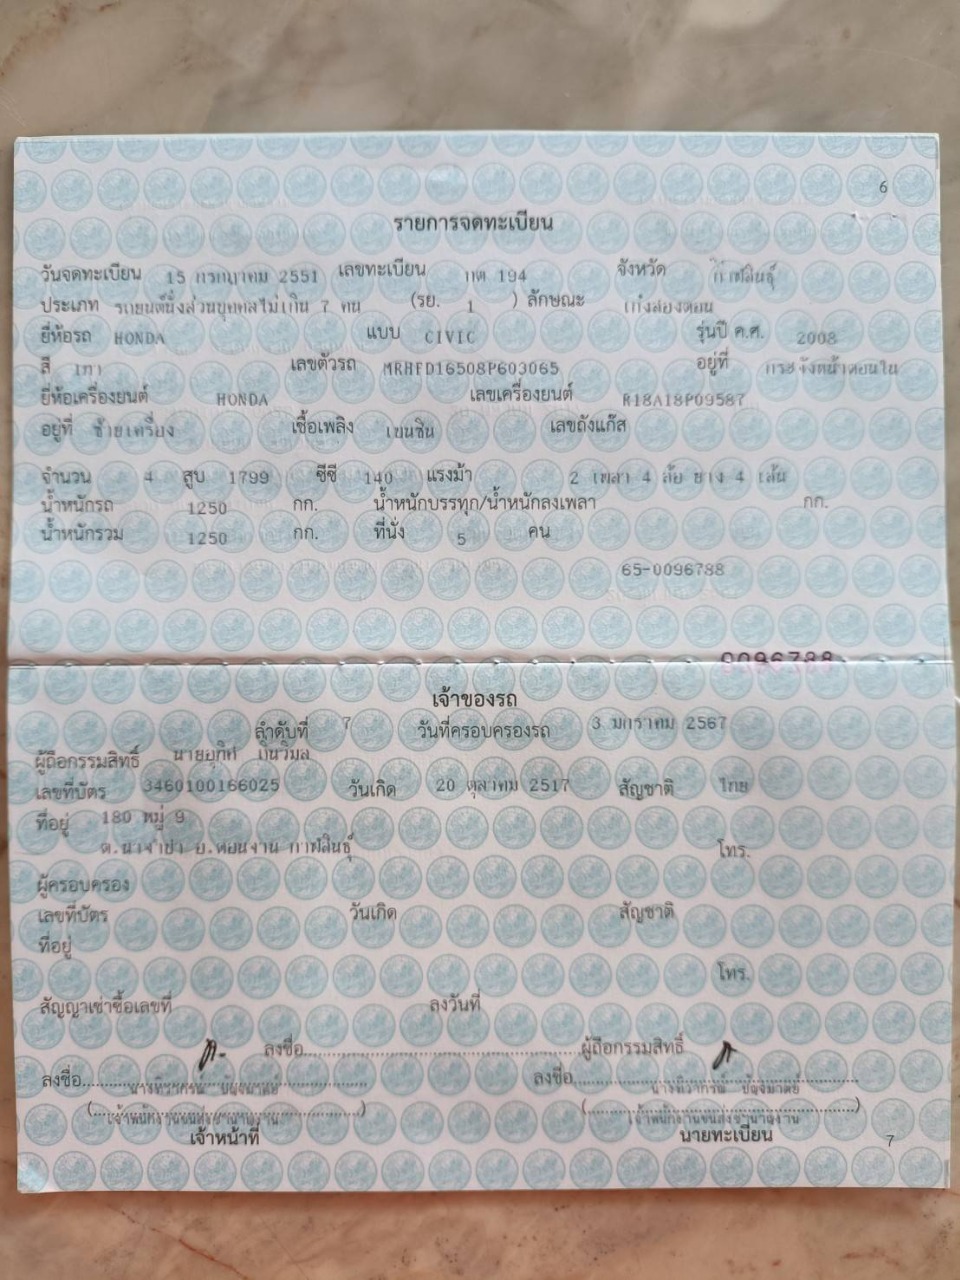 6
รายการจดทะเบียน
วันจดทะเบียน 15 กรกฎาคม 2551 เลขทะเบียน กต 194 จังหวัด กาฬสินธุ์
ประเภท รถยนต์นั่งส่วนบุคคลไม่เกิน 7 คน (รย. 1 ) ลักษณะ เก๋งสองตอน
ยี่ห้อรถ HONDA แบบ CIVIC รุ่นปี ค.ศ. 2008
สี เทา เลขตัวรถ MRHFD16508P603065 อยู่ที่ กระจังหน้าตอนใน
ยี่ห้อเครื่องยนต์ HONDA เลขเครื่องยนต์ R18A18P09587
อยู่ที่ ซ้ายเครื่อง เชื้อเพลิง เบนซิน เลขถังแก๊ส
จำนวน 4 สูบ 1799 ซีซี 140 แรงม้า 2 เพลา 4 ล้อ ยาง 4 เส้น
น้ำหนักรถ 1250 กก. น้ำหนักบรรทุก/น้ำหนักลงเพลา กก.
น้ำหนักรวม 1250 กก. ที่นั่ง 5 คน
65-0096788
0096788
เจ้าของรถ
ลำดับที่ 7 วันที่ครอบครองรถ 3 มกราคม 2567
ผู้ถือกรรมสิทธิ์ นายอุทิศ
เลขที่บัตร 3460100166025 วันเกิด 20 ตุลาคม 2517 สัญชาติ ไทย
ที่อยู่ 180 หมู่ 9
ต.นาจำปา อ.ดอนจาน กาฬสินธุ์ โทร.
ผู้ครอบครอง
เลขที่บัตร วันเกิด สัญชาติ
ที่อยู่
โทร.
สัญญาเช่าซื้อเลขที่ ลงวันที่
ลงชื่อ ผู้ถือกรรมสิทธิ์
ลงชื่อ ลงชื่อ
นางทิวากรณ์ นางทิวากรณ์
(เจ้าพนักงานขนส่งชำนาญงาน) (เจ้าพนักงานขนส่งชำนาญงาน)
เจ้าหน้าที่ นายทะเบียน
7